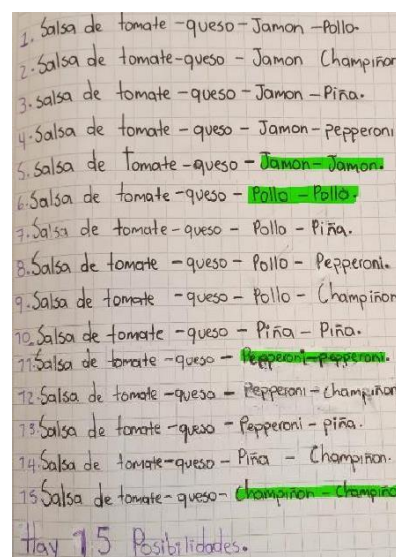 1. Salsa de tomate -queso - Jamon -Pollo.
2. Salsa de tomate-queso - Jamon Champiñon
3. salsa de tomate -queso - Jamon - Piña.
4. Salsa de tomate - queso - Jamon - pepperoni
5. Salsa de Tomate -queso - Jamon - Jamon.
6. Salsa de tomate -queso - Pollo - Pollo.
7. Salsa de tomate - queso - Pollo - Piña.
8. Salsa de tomate -queso - Pollo - Pepperoni.
9. Salsa de tomate -queso - Pollo - Champiñon
10. Salsa de tomate -queso - Piña - Piña.
11. Salsa de tomate -queso - Pepperoni-pepperoni.
12. Salsa de tomate -queso - Pepperoni - champiñon
13. Salsa de tomate -queso - Pepperoni - piña.
14. Salsa de tomate-queso - Piña - Champiñon.
15. Salsa de tomate- queso- Champiñon - Champiño
Hay 15 Posibilidades.